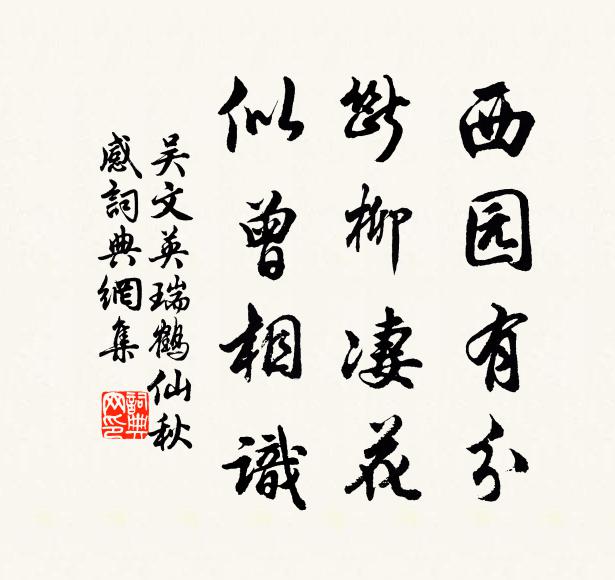 西园有分
断柳凄花
似曾相識
吴文英瑞鶴仙秋
感詞典網集
詞典
网印